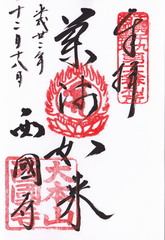 奉拝
薬師如来
西國寺
平成廿二年
十二月十八日
大本山